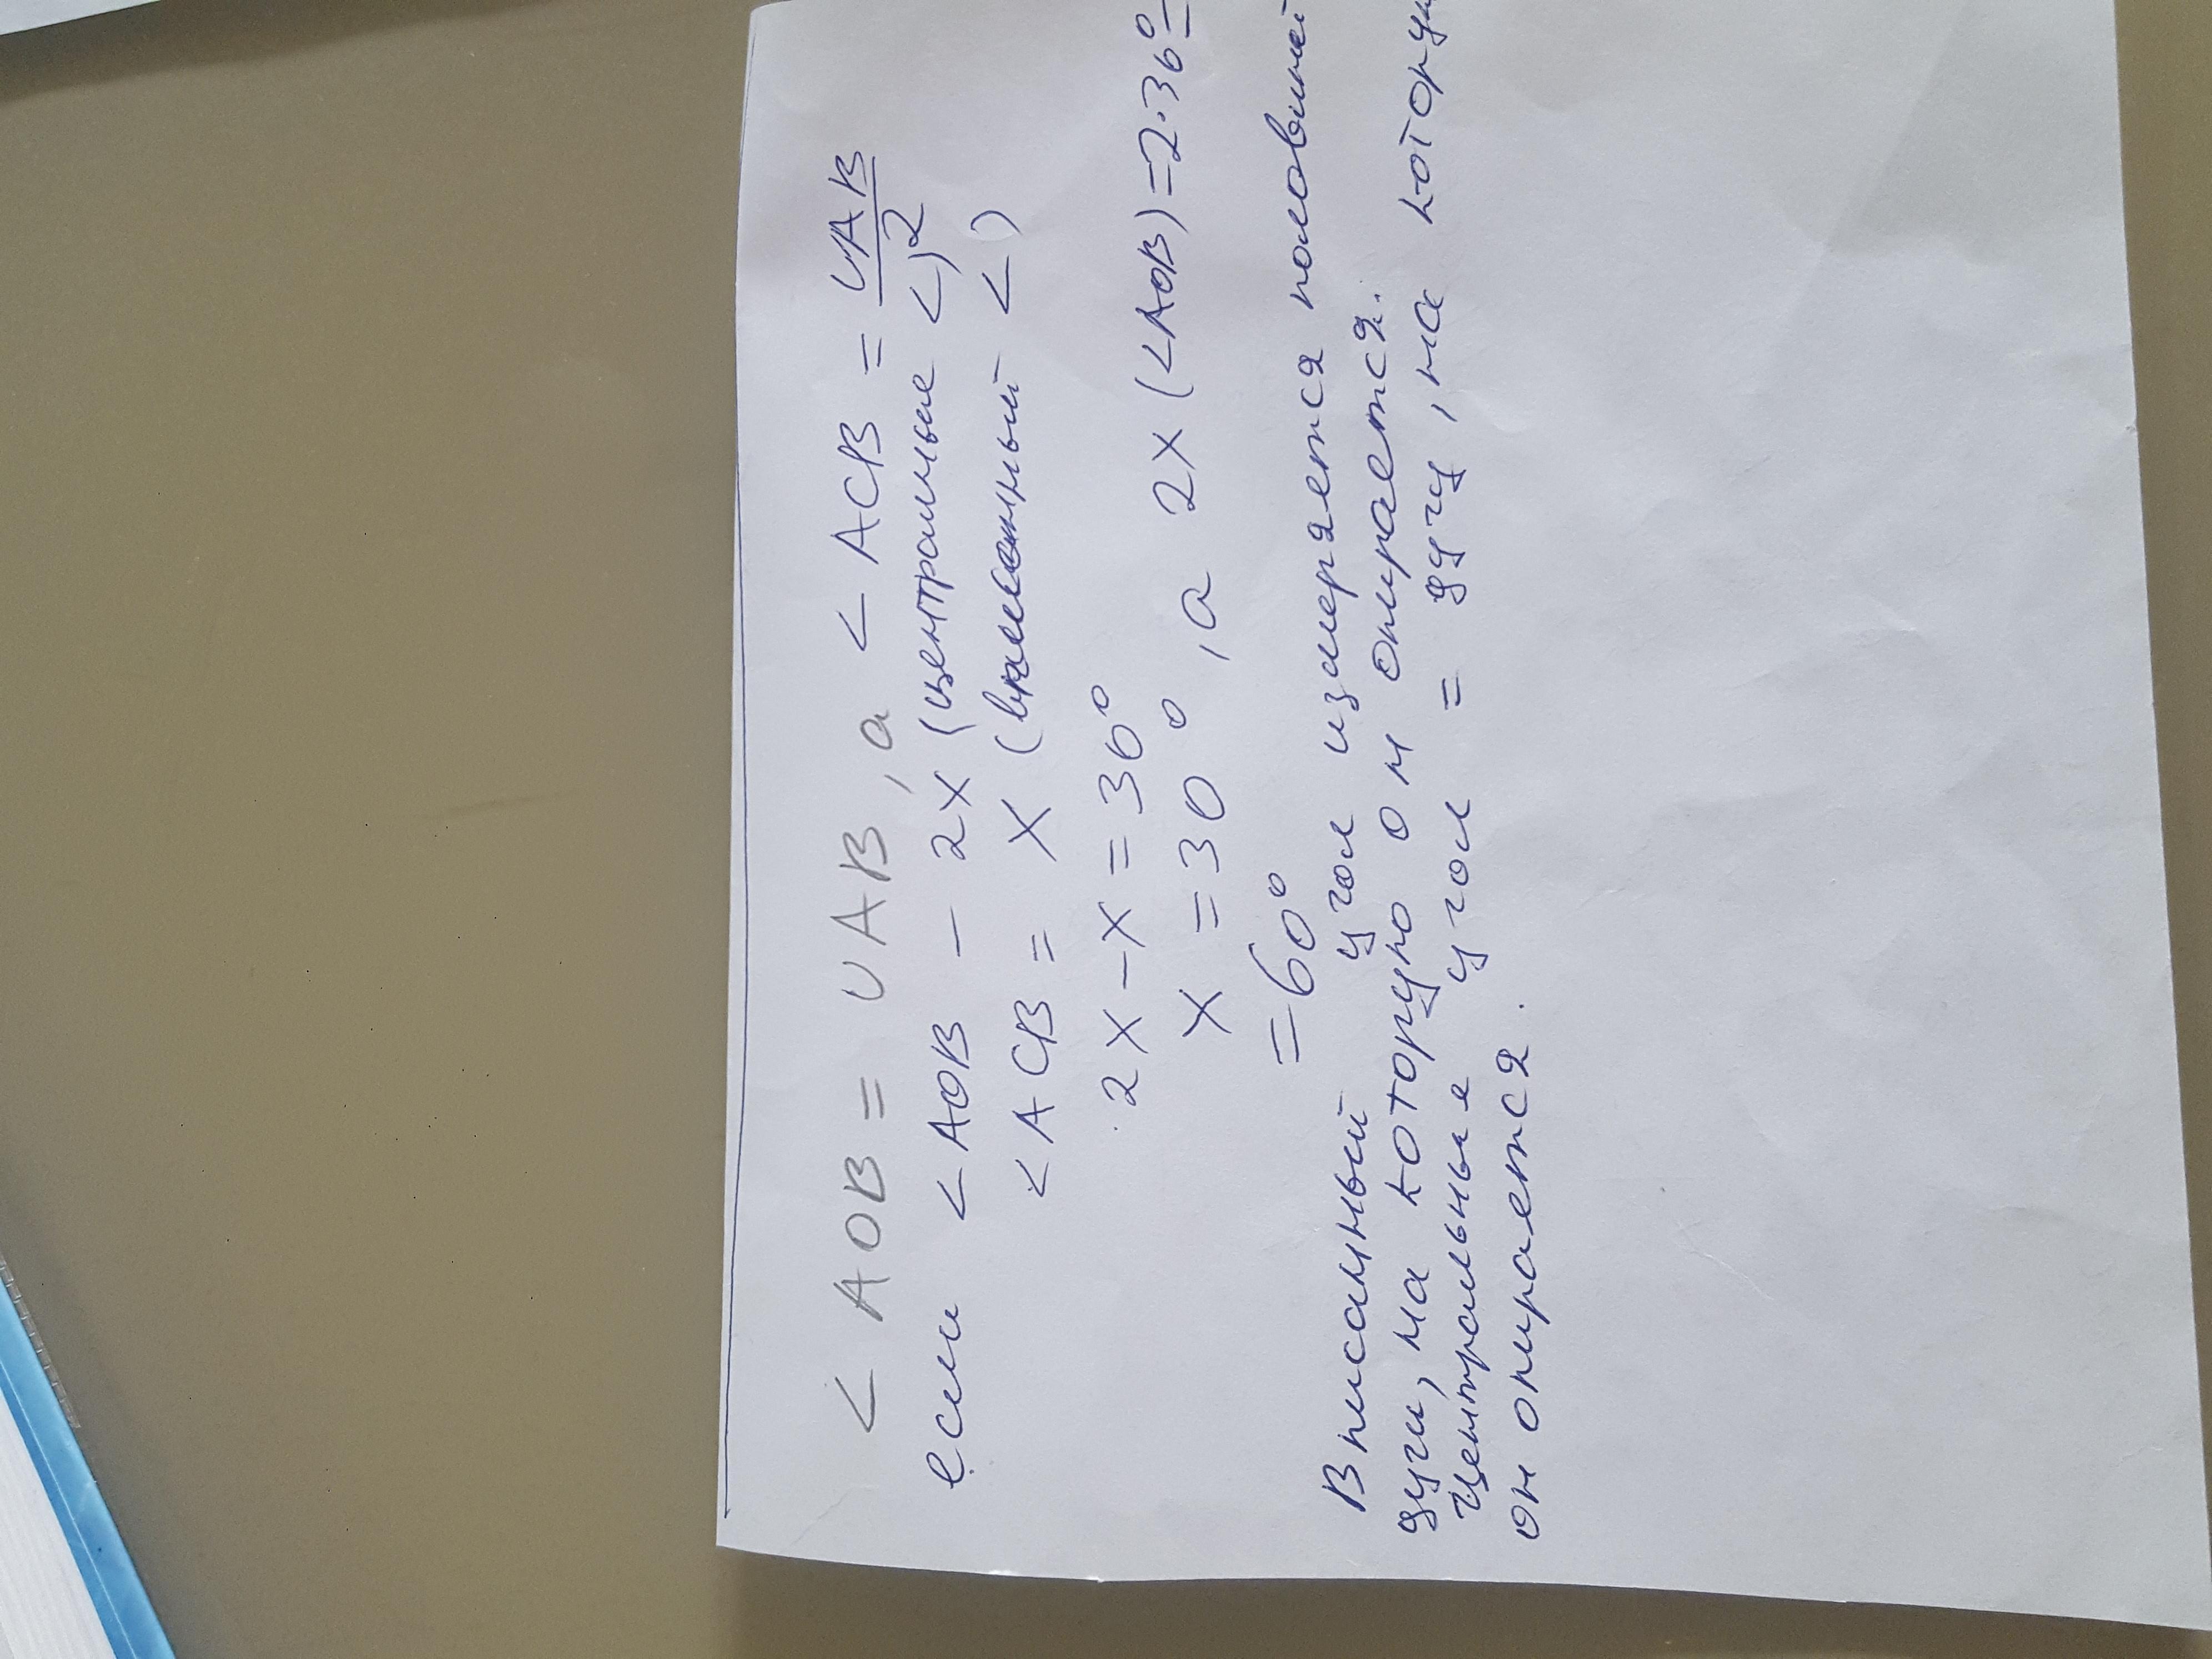 < AOB = ∪AB, а < ACB = ∪AB/2
если < AOB – 2x (центральные <)
< ACB = x (вписанный <)
2x – x = 30°
x = 30°, а 2x (<AOB) = 2·30° =
= 60°
Вписанный угол измеряется половиной
дуги, на которую он опирается.
Центральные угол = дугу, на
он опирается.